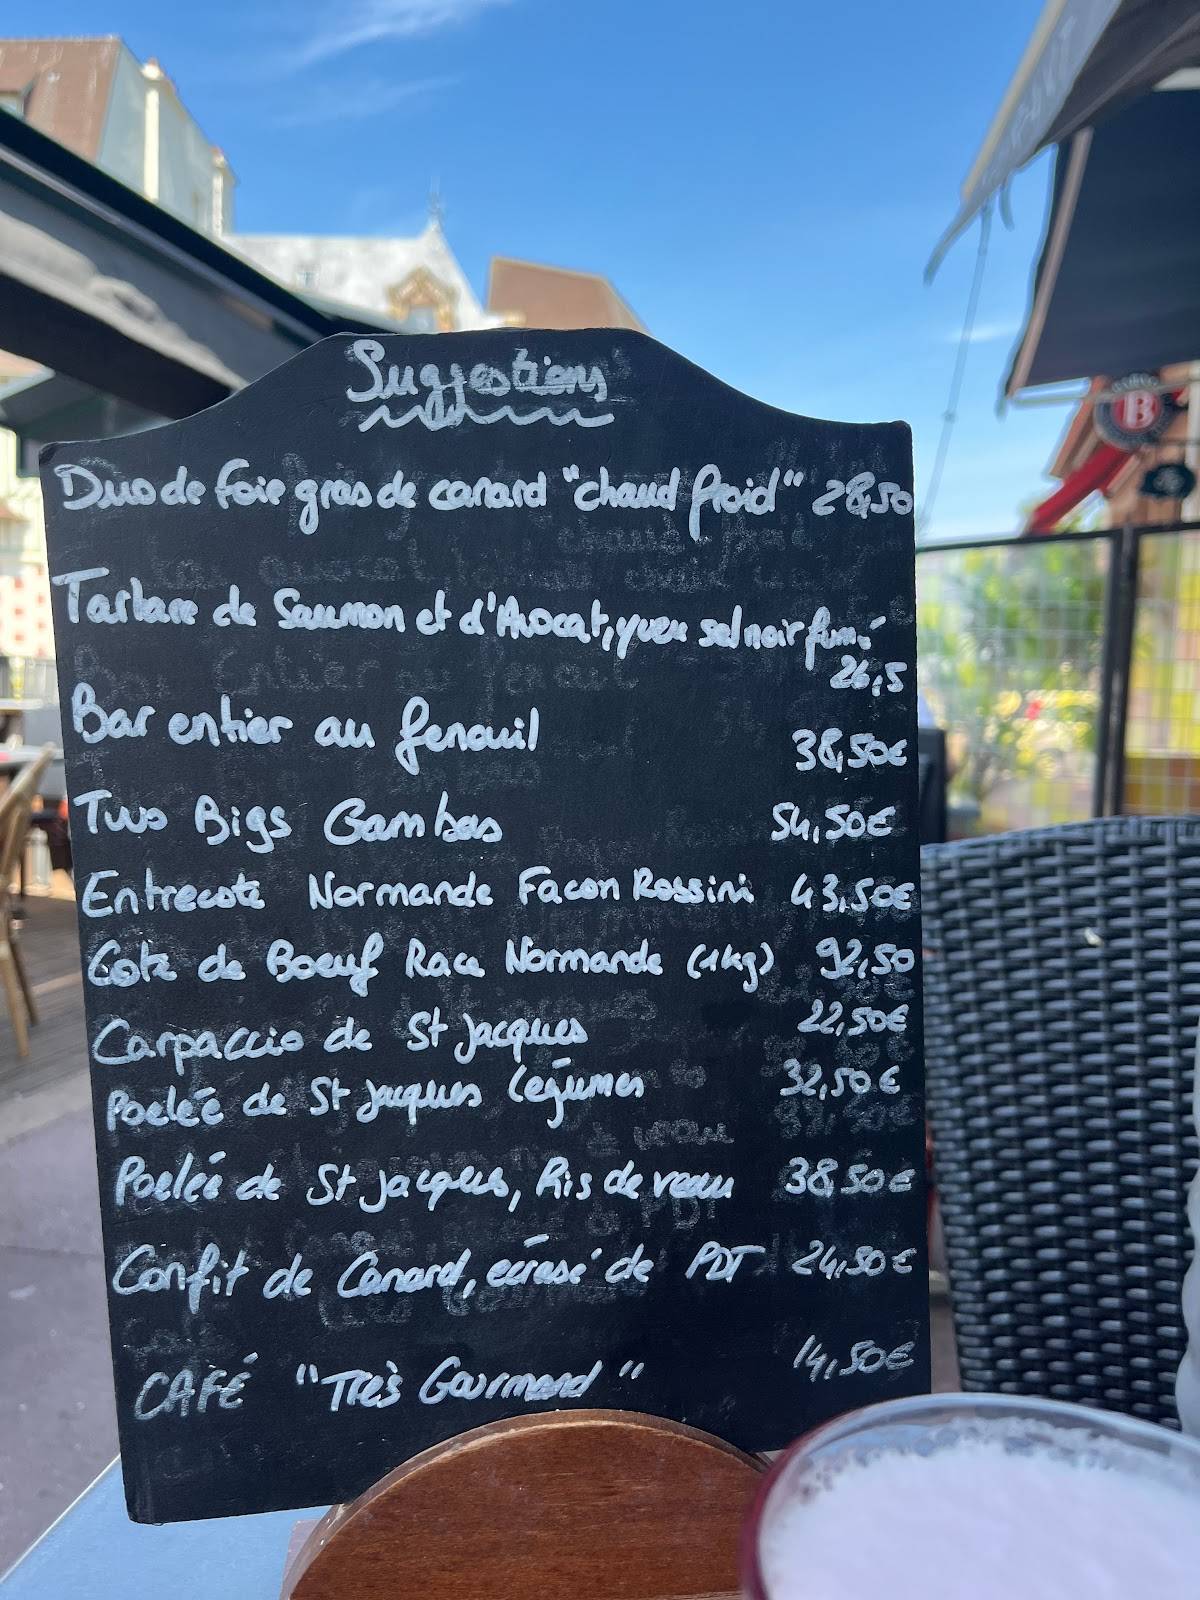 Suggestions
Duo de foie gras de canard "chaud froid" 28,50
Tartare de Saumon et d'Avocat, yuzu sel noir fumé
26,5
Bar entier au fenouil 38,50€
Two Bigs Gambas 54,50€
Entrecote Normande Facon Rossini 43,50€
Cote de Boeuf Race Normande (1kg) 92,50
Carpaccio de St Jacques 22,50€
Poelée de St Jacques Légumes 32,50€
Poelée de St Jacques, Ris de veau 38,50€
Confit de Canard, écrasé de PDT 24,50€
CAFÉ "Très Gourmand" 14,50€
B